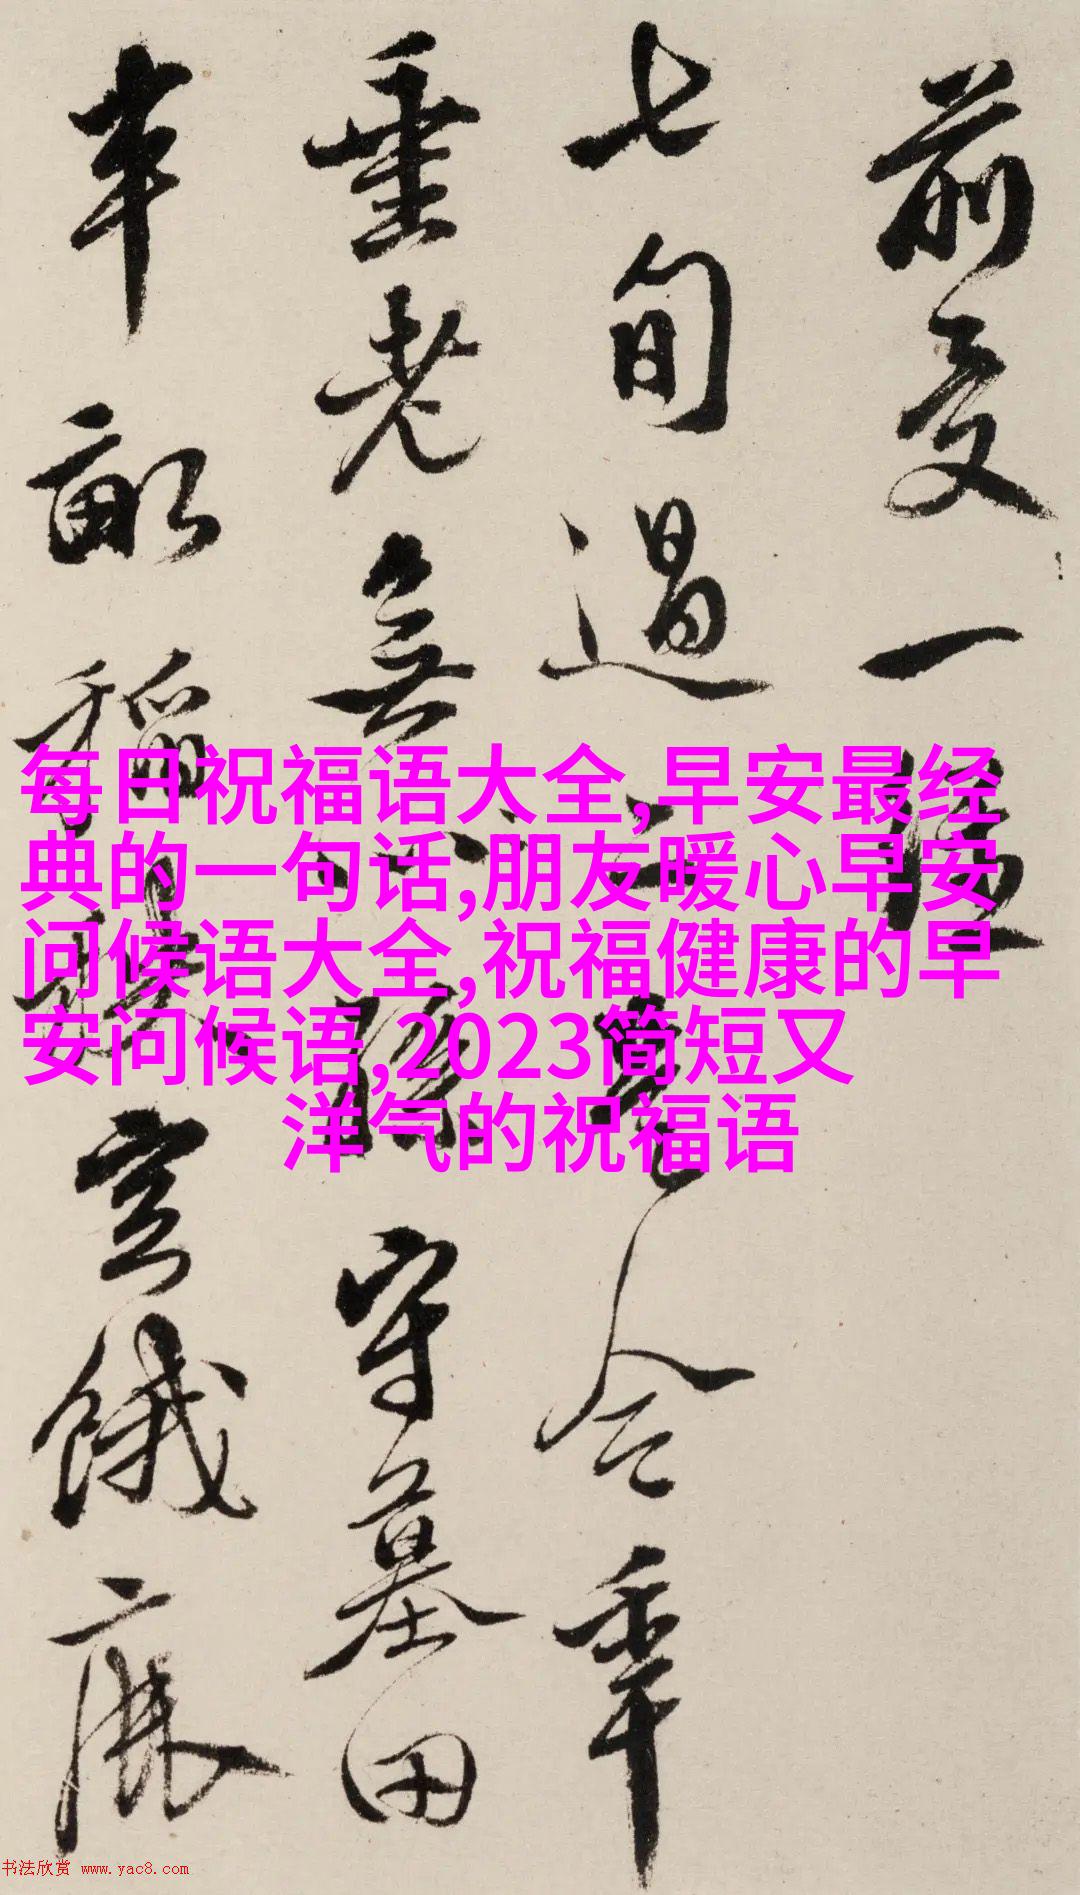 前受一
七旬過二是今年
垂老無孫守墓田
半畝稻空餓
每日祝福语大全,早安最经
典的一句话,朋友暖心早安
问候语大全,祝福健康的早
安问候语,2023简短又
洋气的祝福语
书法欣赏 www.yac8.com